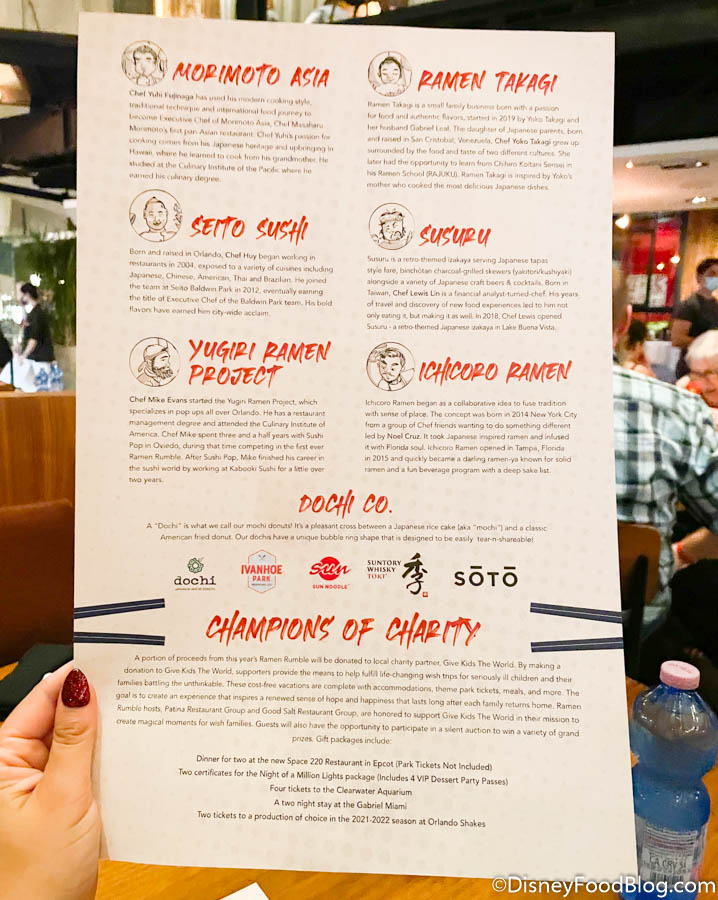 MORIMOTO ASIA
Chef Yuhi Fujinaga has used his modern cooking style,
traditional technique and international food journey to
become Executive Chef of Morimoto Asia, Chef Masaharu
Morimoto's first pan Asian restaurant. Chef Yuhi's passion for
cooking comes from his Japanese heritage and upbringing in
Hawaii, where he learned to cook from his grandmother. He
studied at the Culinary Institute of the Pacific where he
earned his culinary degree.
RAMEN TAKAGI
Ramen Takagi is a small family business born with a passion
for food and authentic flavors, started in 2019 by Yoko Takagi and
her husband Gabriel Leal. The daughter of Japanese parents, born
and raised in San Cristobal, Venezuela, Chef Yoko Takagi grew up
surrounded by the food and taste of two different cultures. She
later had the opportunity to learn from Chihiro Koitani Sensei in
his Ramen School (RAJUKU). Ramen Takagi is inspired by Yoko's
mother who cooked the most delicious Japanese dishes.
SEITO SUSHI
Born and raised in Orlando, Chef Huy began working in
restaurants in 2004, exposed to a variety of cuisines including
Japanese, Chinese, American, Thai and Brazilian. He joined
the team at Seito Baldwin Park in 2012, eventually earning
the title of Executive Chef of the Baldwin Park team. His bold
flavors have earned him city-wide acclaim.
SUSURU
Susuru is a retro-themed izakaya serving Japanese tapas
style fare, binchōtan charcoal-grilled skewers (yakitori/kushiyaki)
alongside a variety of Japanese craft beers & cocktails. Born in
Taiwan, Chef Lewis Lin is a financial analyst-turned-chef. His years
of travel and discovery of new food experiences led him to not
only eating it, but making it as well. In 2018, Chef Lewis opened
Susuru - a retro-themed Japanese izakaya in Lake Buena Vista.
YUGIRI RAMEN
PROJECT
Chef Mike Evans started the Yugiri Ramen Project, which
specializes in pop ups all over Orlando. He has a restaurant
management degree and attended the Culinary Institute of
America. Chef Mike spent three and a half years with Sushi
Pop in Oviedo, during that time competing in the first ever
Ramen Rumble. After Sushi Pop, Mike finished his career in
the sushi world by working at Kabooki Sushi for a little over
two years.
ICHICORO RAMEN
Ichicoro Ramen began as a collaborative idea to fuse tradition
with sense of place. The concept was born in 2014 New York City
from a group of Chef friends wanting to do something different
led by Noel Cruz. It took Japanese inspired ramen and infused
it with Florida soul. Ichicoro Ramen opened in Tampa, Florida
in 2015 and quickly became a darling ramen-ya known for solid
ramen and a fun beverage program with a deep sake list.
DOCHI CO.
A "Dochi" is what we call our mochi donuts! It's a pleasant cross between a Japanese rice cake (aka "mochi") and a classic
American fried donut. Our dochi have a unique bubble ring shape that is designed to be easily tear-n-shareable!
dochi
IVANHOE
PARK
Sun
SUN NOODLE
SUNTORY
WHISKY
TOKI
季
SŌTŌ
CHAMPIONS OF CHARITY
A portion of proceeds from this year's Ramen Rumble will be donated to local charity partner, Give Kids The World. By making a
donation to Give Kids The World, supporters provide the means to help fulfill life-changing wish trips for seriously ill children and their
families battling the unthinkable. These cost-free vacations are complete with accommodations, theme park tickets, meals, and more. The
goal is to create an experience that inspires a renewed sense of hope and happiness that lasts long after each family returns home. Ramen
Rumble hosts, Patina Restaurant Group and Good Salt Restaurant Group, are honored to support Give Kids The World in their mission to
create magical moments for wish families. Guests will also have the opportunity to participate in a silent auction to win a variety of grand
prizes. Gift packages include:
Dinner for two at the new Space 220 Restaurant in Epcot (Park Tickets Not Included)
Two certificates for the Night of a Million Lights package (Includes 4 VIP Dessert Party Passes)
Four tickets to the Clearwater Aquarium
A two night stay at the Gabriel Miami
Two tickets to a production of choice in the 2021-2022 season at Orlando Shakes
©DisneyFoodBlog.com